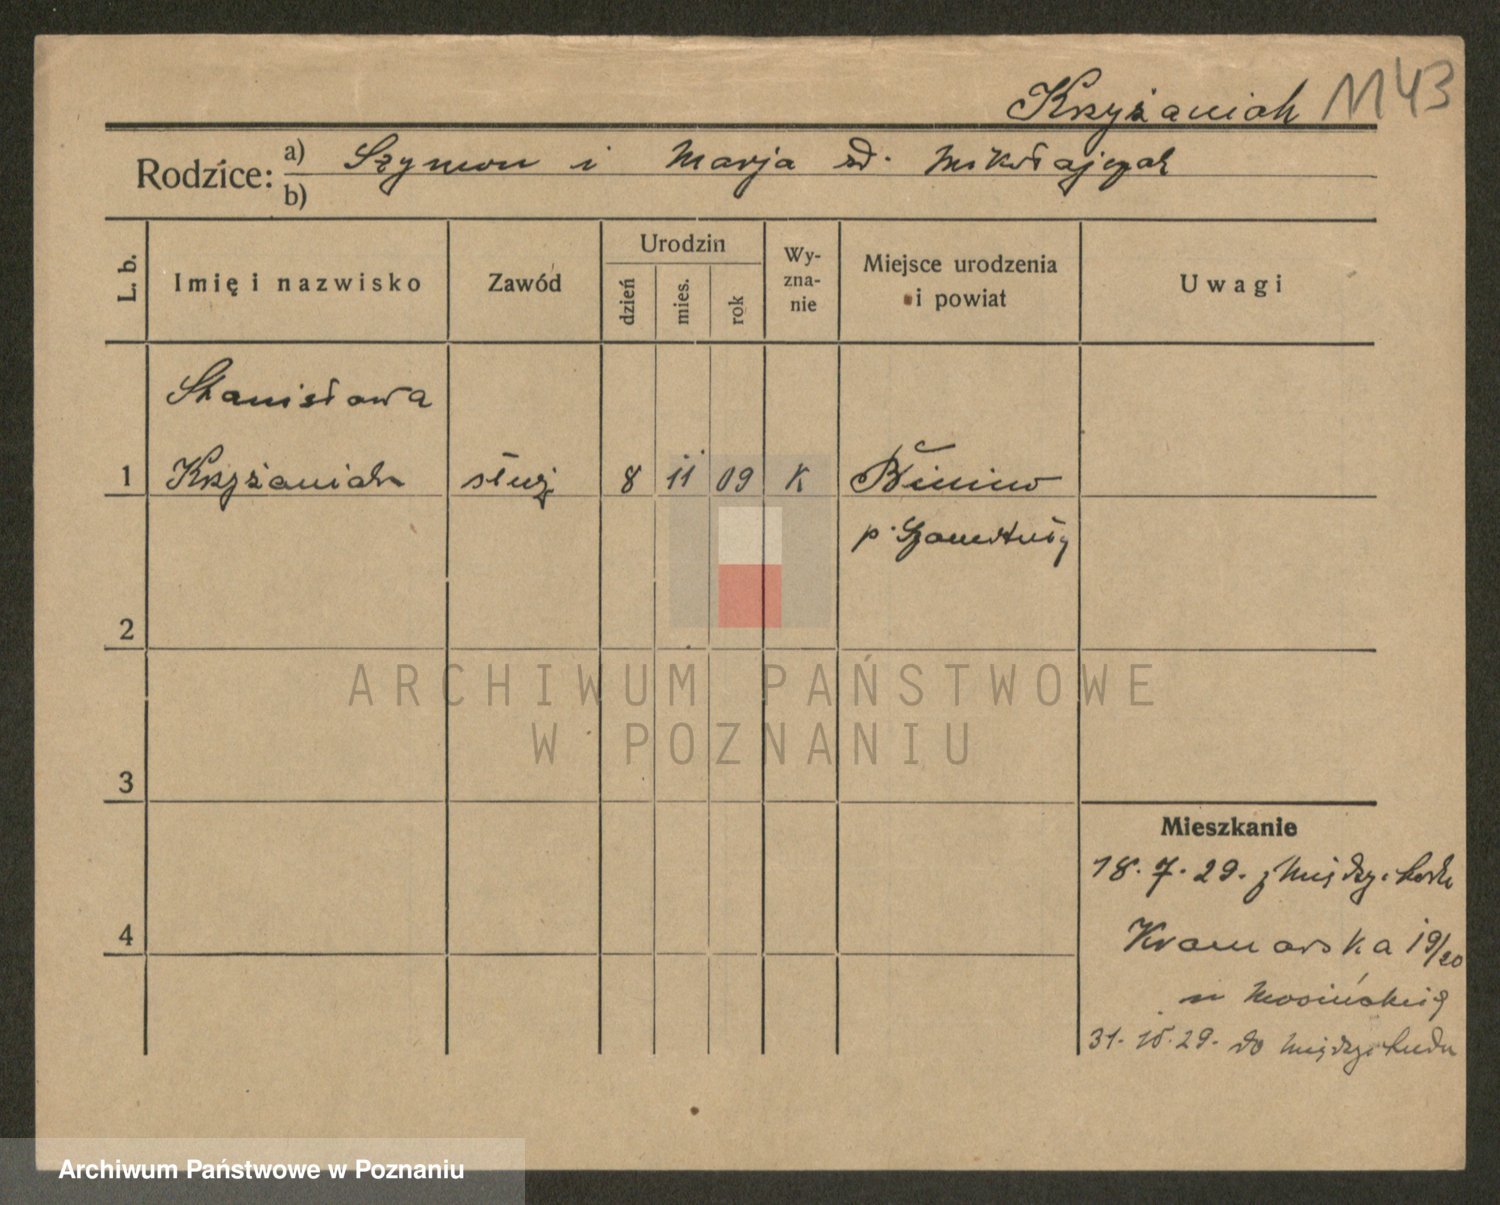 Krzyżaniak 1143
Rodzice: a) Szymon i Marja zd. Mikołajczak
b)
L. b.
Imię i nazwisko
Zawód
Urodzin
dzień
mies.
rok
Wy-
zna-
nie
Miejsce urodzenia
i powiat
Uwagi
Stanisława
1 Krzyżaniak służ 8 11 09 K
p. Szamotuły
2
3
4
Mieszkanie
18. 7. 29. z Międzychodu
Kramarska 19/20
u Mosińskiej
31. 10. 29. do Międzychodu
ARCHIWUM PAŃSTWOWE
W POZNANIU
Archiwum Państwowe w Poznaniu